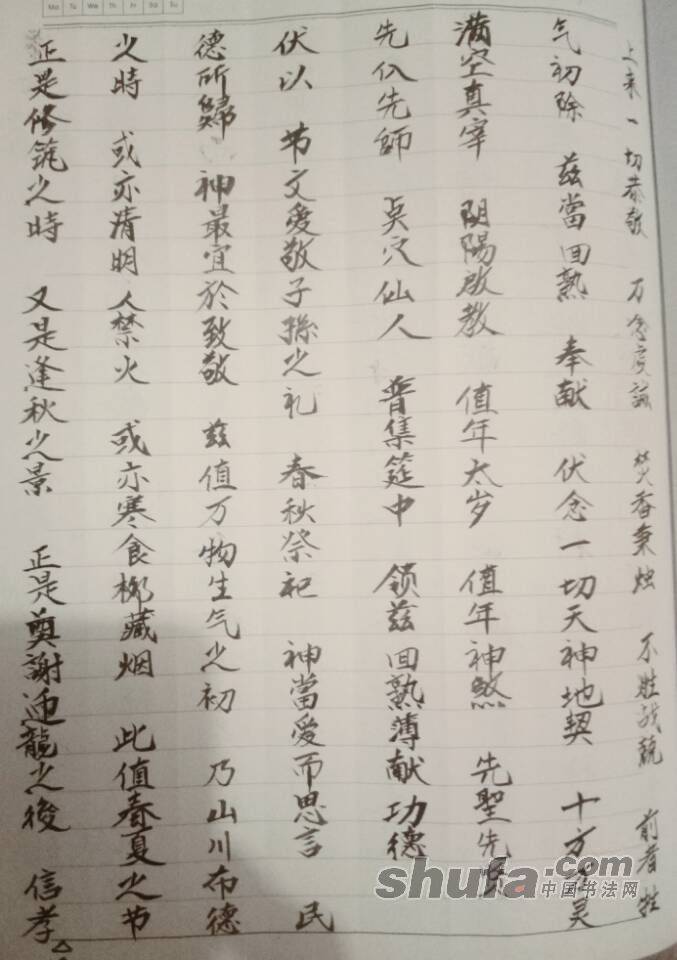 Mo Tu We Th Fr Sa Su
上来一切恭敬 万念虔誠 焚香秉烛 不胜战兢 前者牲
气初除 兹當回熟 奉献 伏念一切天神地契 十方
满空真宰 阴陽啟教 值年太岁 值年神煞 先聖先贤
先仏先師 点穴仙人 普集筵中 领兹回熟薄献功德
伏以 节文爱敬子孫之礼 春秋祭祀 神當爱而思言 民
德所歸 神最宜於致敬 兹值万物生气之初 乃山川布德
之時 或亦清明人禁火 或亦寒食柳藏烟 此值春夏之节
正是修筑之時 又是逢秋之景 正是奠謝迎龍之後 信孝
shufa.com
中国书法网